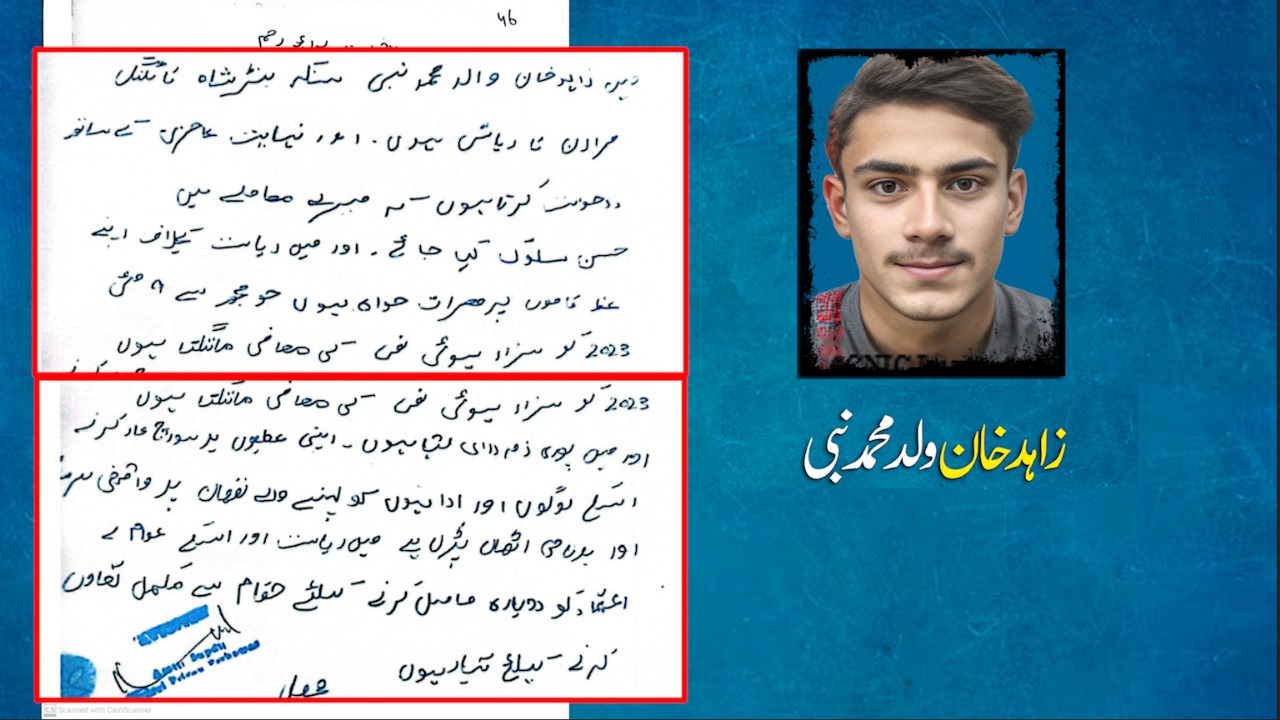 46
میں زاہد خان والد محمد نبی سکنہ شاہ کاٹلنگ
مردان کا رہائشی ہوں۔ اور نہایت عاجزی کے ساتھ
درخواست کرتا ہوں کہ میرے معاملے میں
حسن سلوک کیا جائے۔ اور میں ریاست کیخلاف اپنے
پر معذرت خواہ ہوں جو مجھ سے ۹ مئی
2023 کو سرزد ہوئی تھی کی معافی مانگتا ہوں
2023 کو سرزد ہوئی تھی کی معافی مانگتا ہوں
اور میں پوری ذمہ داری لیتا ہوں۔ اپنی غلطیوں پر کرنے
اسکے لوگوں اور اداروں کو پہنچنے والے نقصان پر
اور بدنامی اٹھانی پڑی ہے میں ریاست اور اسکے عوام کے
اعتماد کو دوبارہ حاصل کرنے کیلئے حکام سے مکمل تعاون
کرنے کیلئے تیار ہوں
زاہد خان ولد محمد نبی
CS Scanned with CamScanner